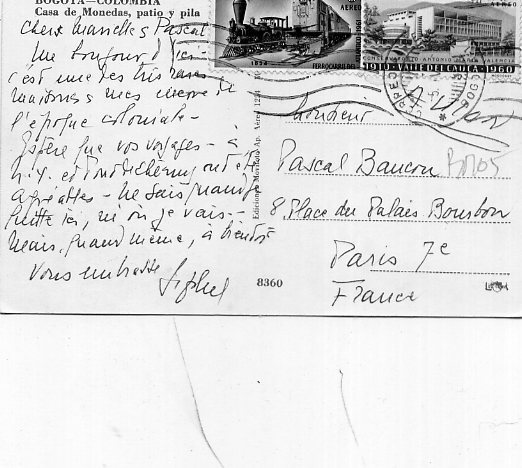 BOGOTA—COLOMBIA
Casa de Monedas, patio y pila
Chers Marcelles & Pascal
Un bonjour d'ici
c'est une des très rares
maisons
l'époque coloniale.
Espère que vos voyages - à
N.Y. et Pondichéry ont été
agréables - Ne sais quand je
quitte ici, ni où je vais -
Mais, quand même, à bientôt
Vous embrasse
8360
Ediciones Movifoto Ap. Aéreo
AEREO
1854
FERROCARRIL DEL
AEREO
CONSERVATORIO ANTONIO MARIA VALENCIA
1910 VALLE DEL CAUCA 1960
Monsieur
Pascal
8, Place du Palais Bourbon
Paris 7e
France